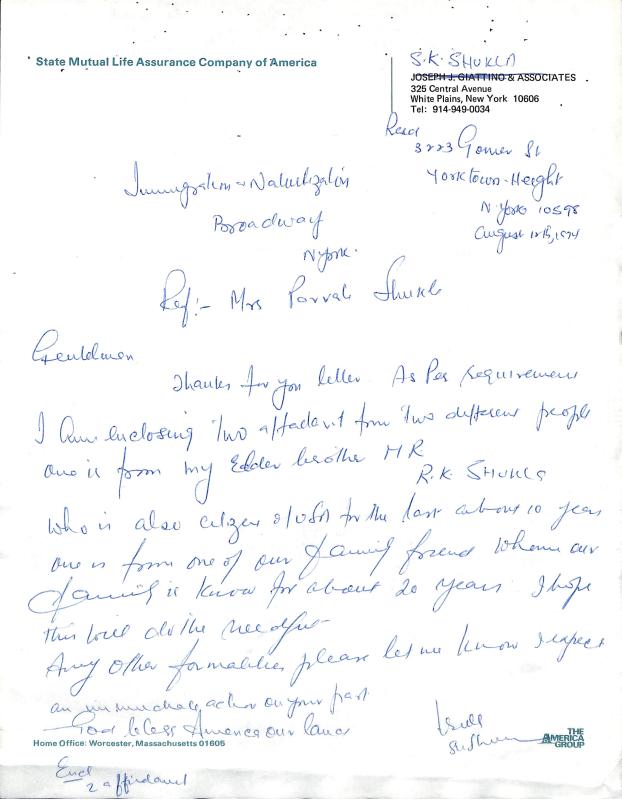 State Mutual Life Assurance Company of America
S.K. SHUKLA
JOSEPH J. GIATTINO & ASSOCIATES
325 Central Avenue
White Plains, New York 10606
Tel: 914-949-0034
3223 Gomer St
Yorktown-Height
N York 10598
August 12th, 1974
Immigration & Natulization
Broadway
N York.
Ref:- Mrs Parvati Shukla
Gentelmen
Thanks for you letter. As Per requirement
I am enclosing Two affadavit from Two different people
one is from my Elder brother MR
R.K. SHUKLA
who is also citizen of USA for the last about 10 years
one is from one of our family friend whom our
family is know for about 20 years I hope
this will do the needful
Any other formalities please let me know I expect
an immediate action on your part
God bless America our land
Home Office: Worcester, Massachusetts 01605
THE AMERICA GROUP
Encl
2 affidavit